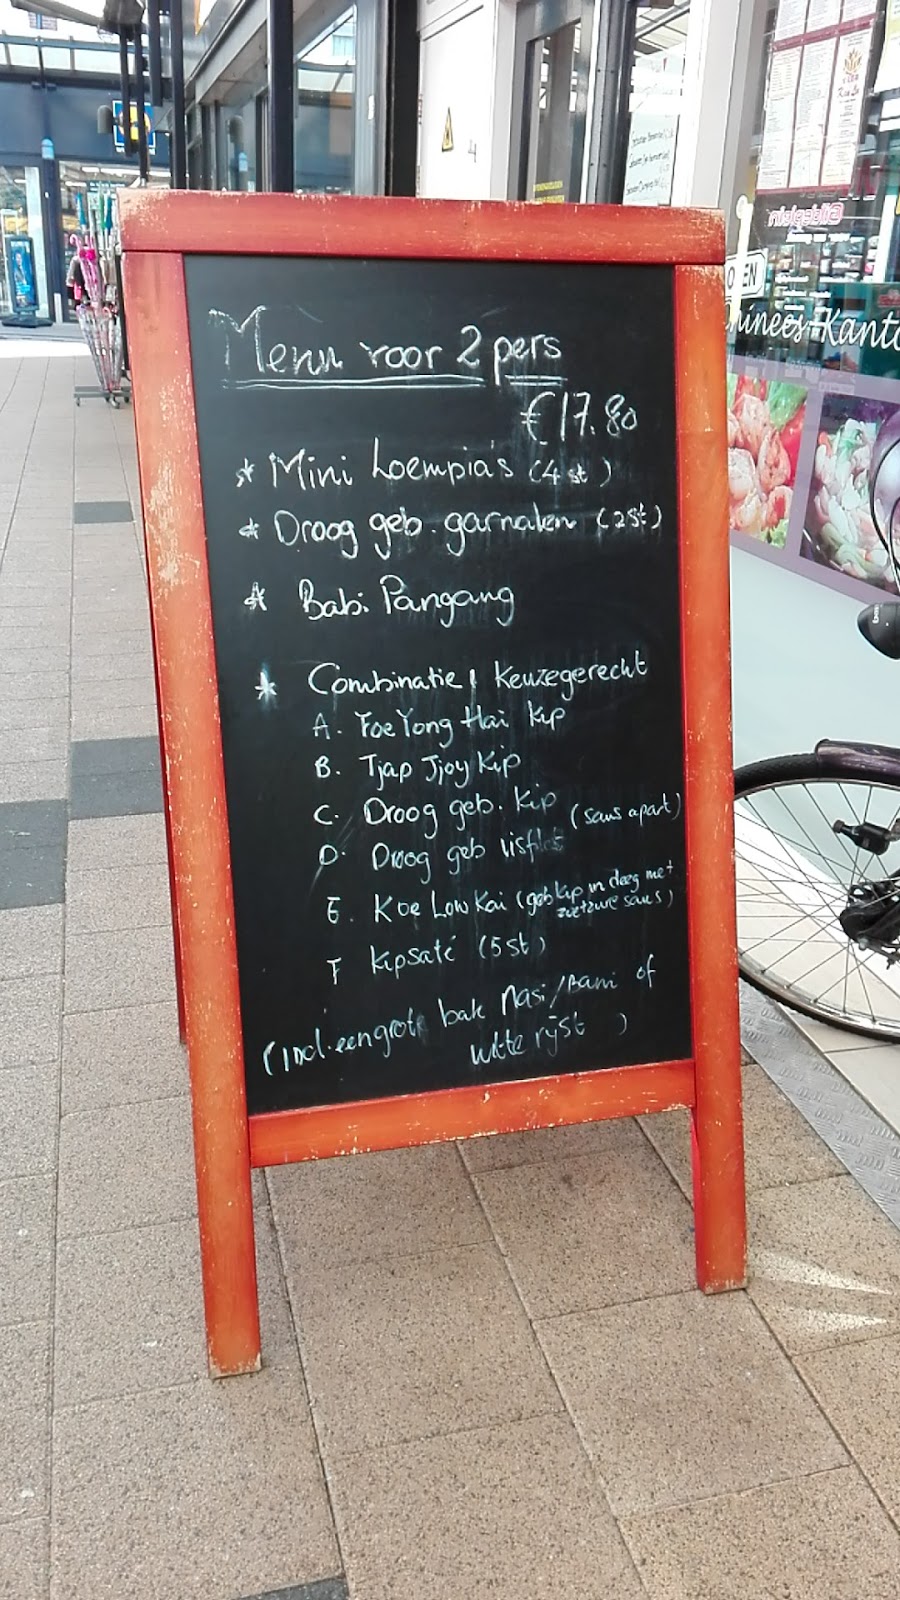 Menu voor 2 pers
€17.80
* Mini Loempia's (4 st)
* Droog geb. garnalen (2st)
* Babi Pangang
* Combinatie, Keuzegerecht
A. Foe Yong Hai Kip
B. Tjap Tjoy Kip
C. Droog geb. Kip
(saus apart)
D. Droog geb visfilet
E. Koe Low Kai (geb kip in deeg met
zoetzure saus)
F Kipsaté (5st)
(incl. een grote bak Nasi/Bami of
witte rijst)
OPEN
hinees-Kanto